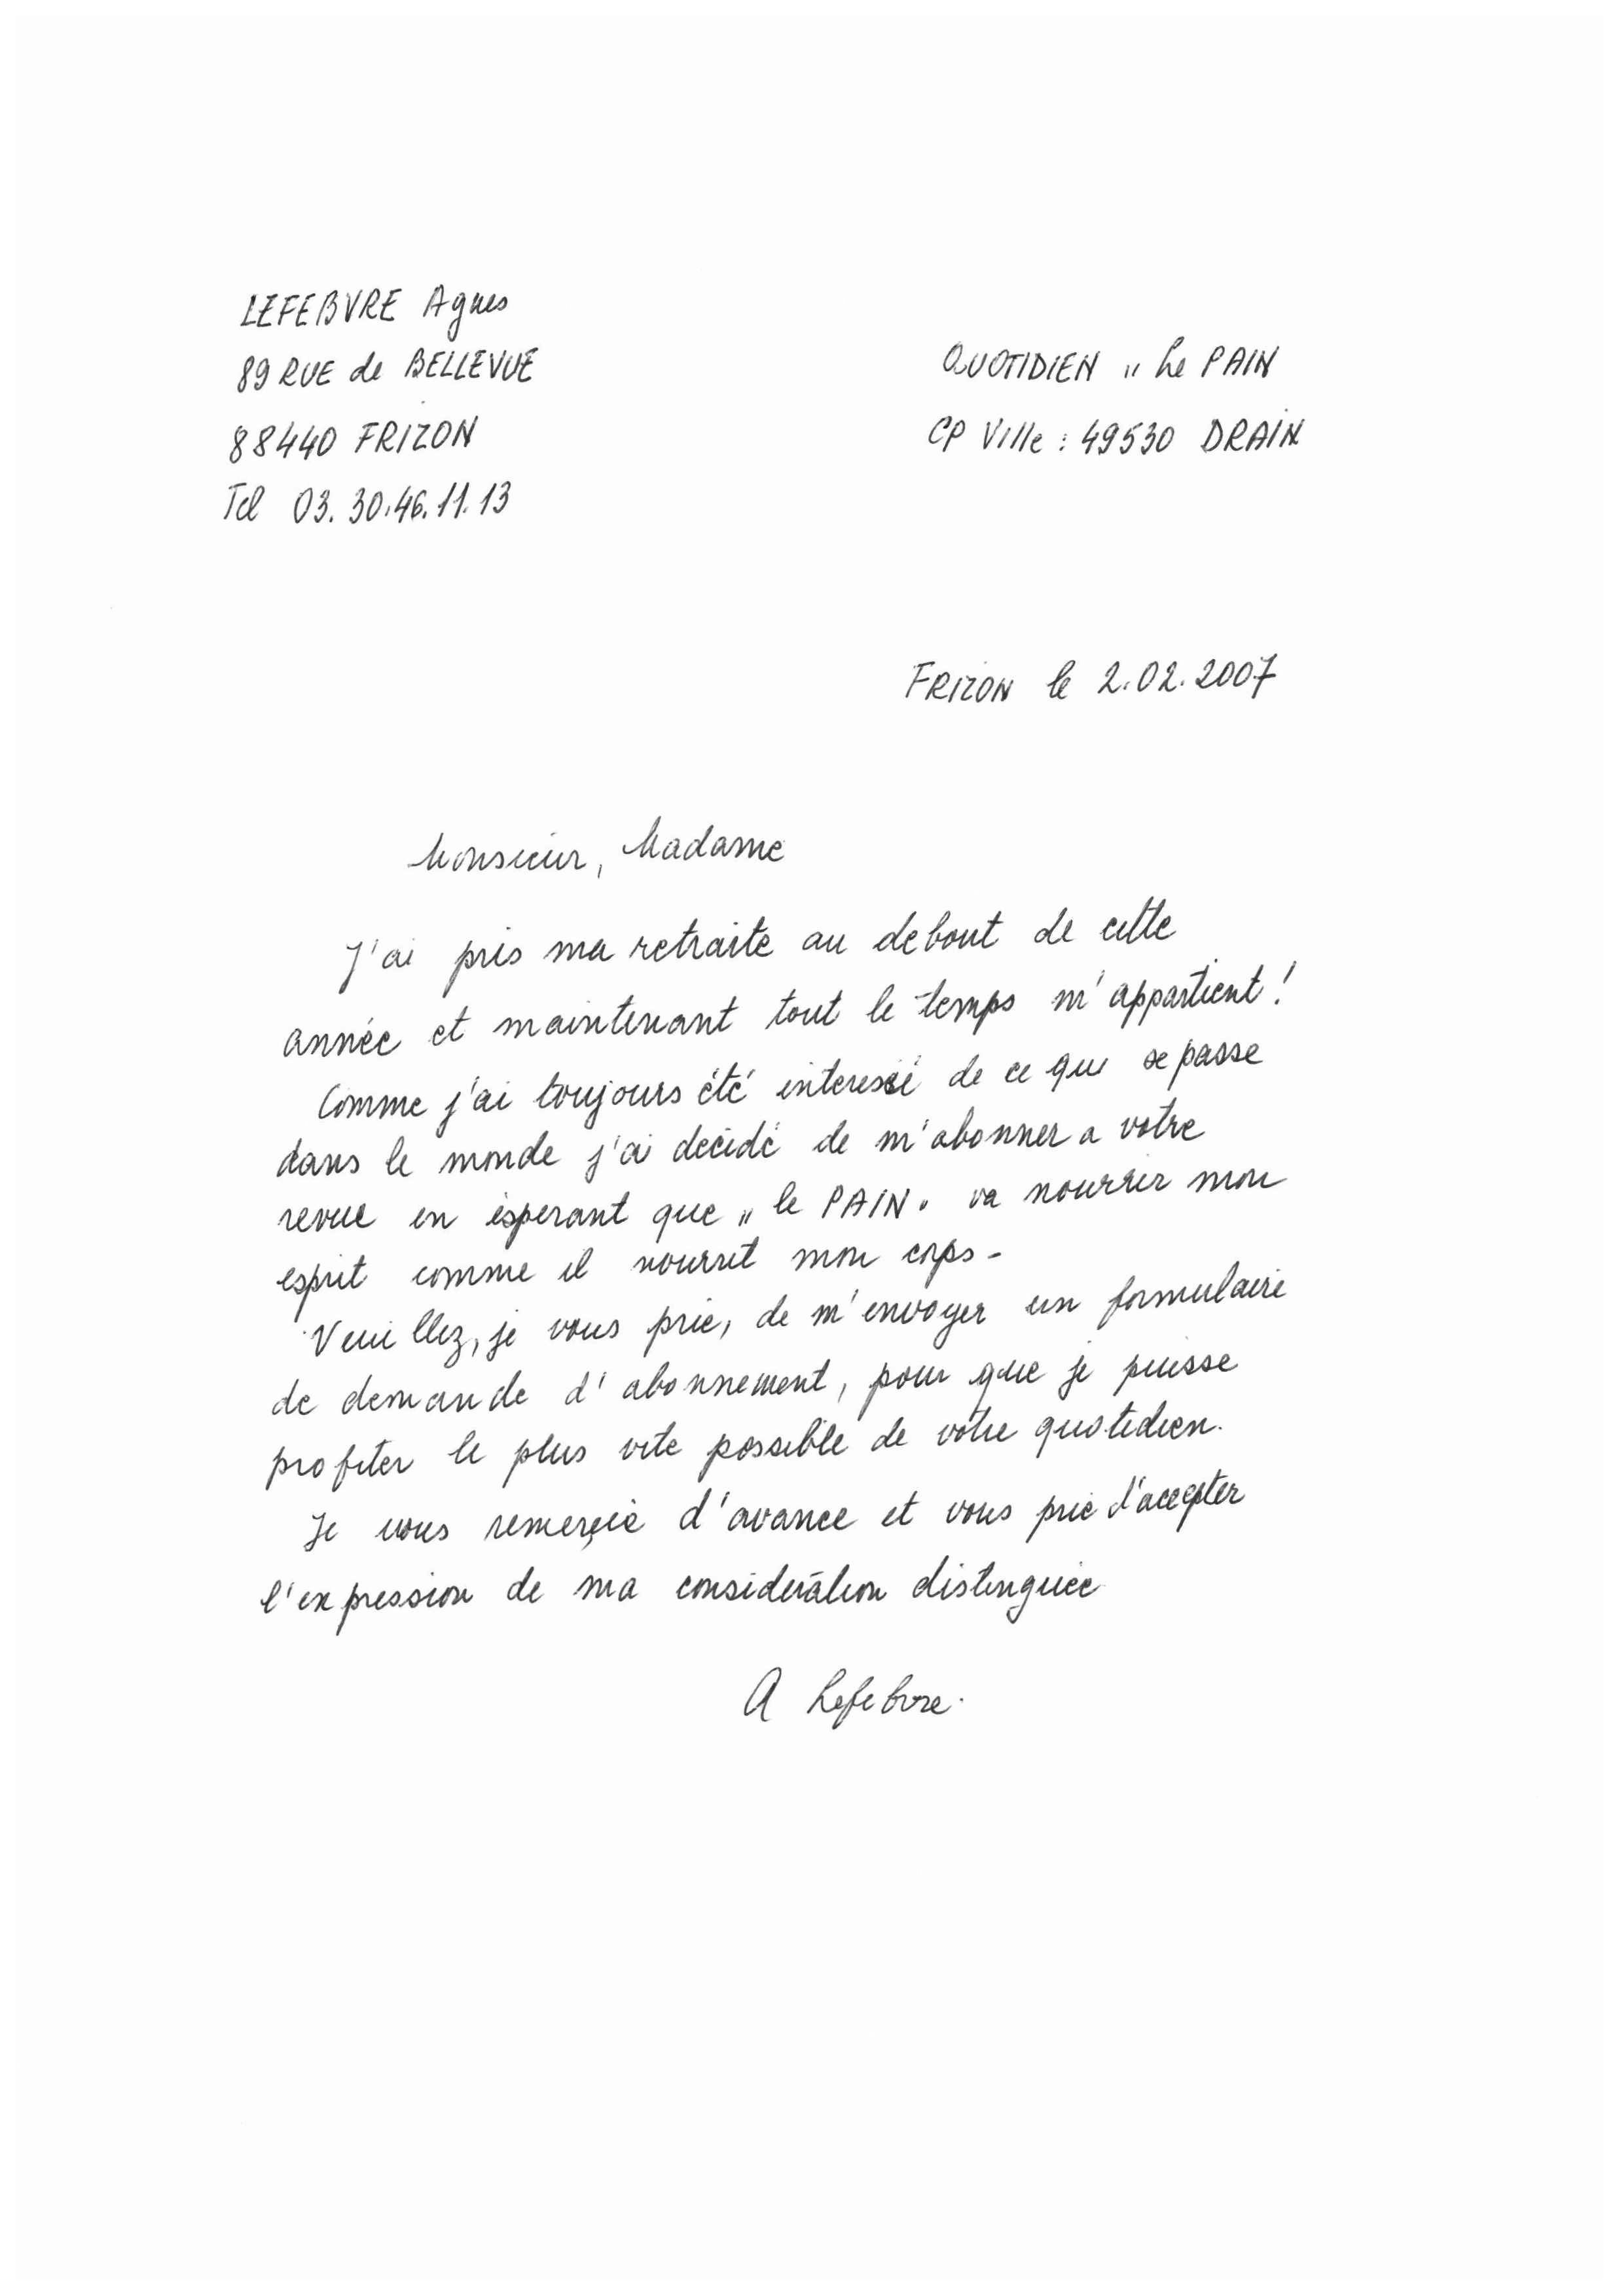 LEFEBVRE Agnes
89 RUE de BELLEVUE
88440 FRIZON
Tel 03.30.46.11.13
QUOTIDIEN " Le PAIN
CP Ville : 49530 DRAIN
FRIZON le 2.02.2007
Monsieur, Madame
J'ai pris ma retraite au debout de cette
année et maintenant tout le temps m'appartient !
Comme j'ai toujours été interessé de ce qui se passe
dans le monde j'ai decidé de m'abonner a votre
revue en ésperant que " le PAIN " va nourrir mon
esprit comme il nourrit mon corps -
Veuillez, je vous prie, de m'envoyer un formulaire
de demande d'abonnement, pour que je puisse
profiter le plus vite possible de votre quotidien.
Je vous remerçie d'avance et vous prie d'accepter
l'expression de ma consideration distinguée
A Lefebvre.